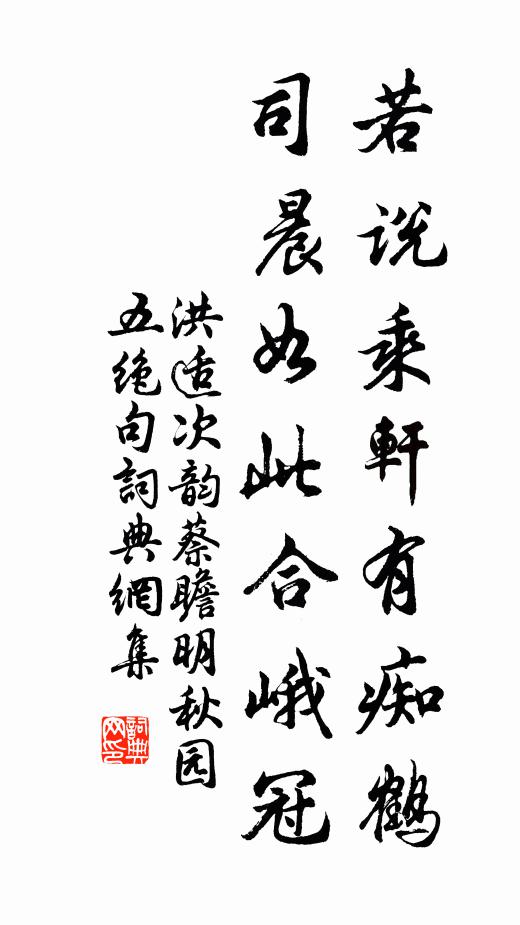 若说乘軒有痴鶴
司晨如此合峨冠
洪适次韵蔡瞻明秋园
五绝句詞典網集
詞典網印